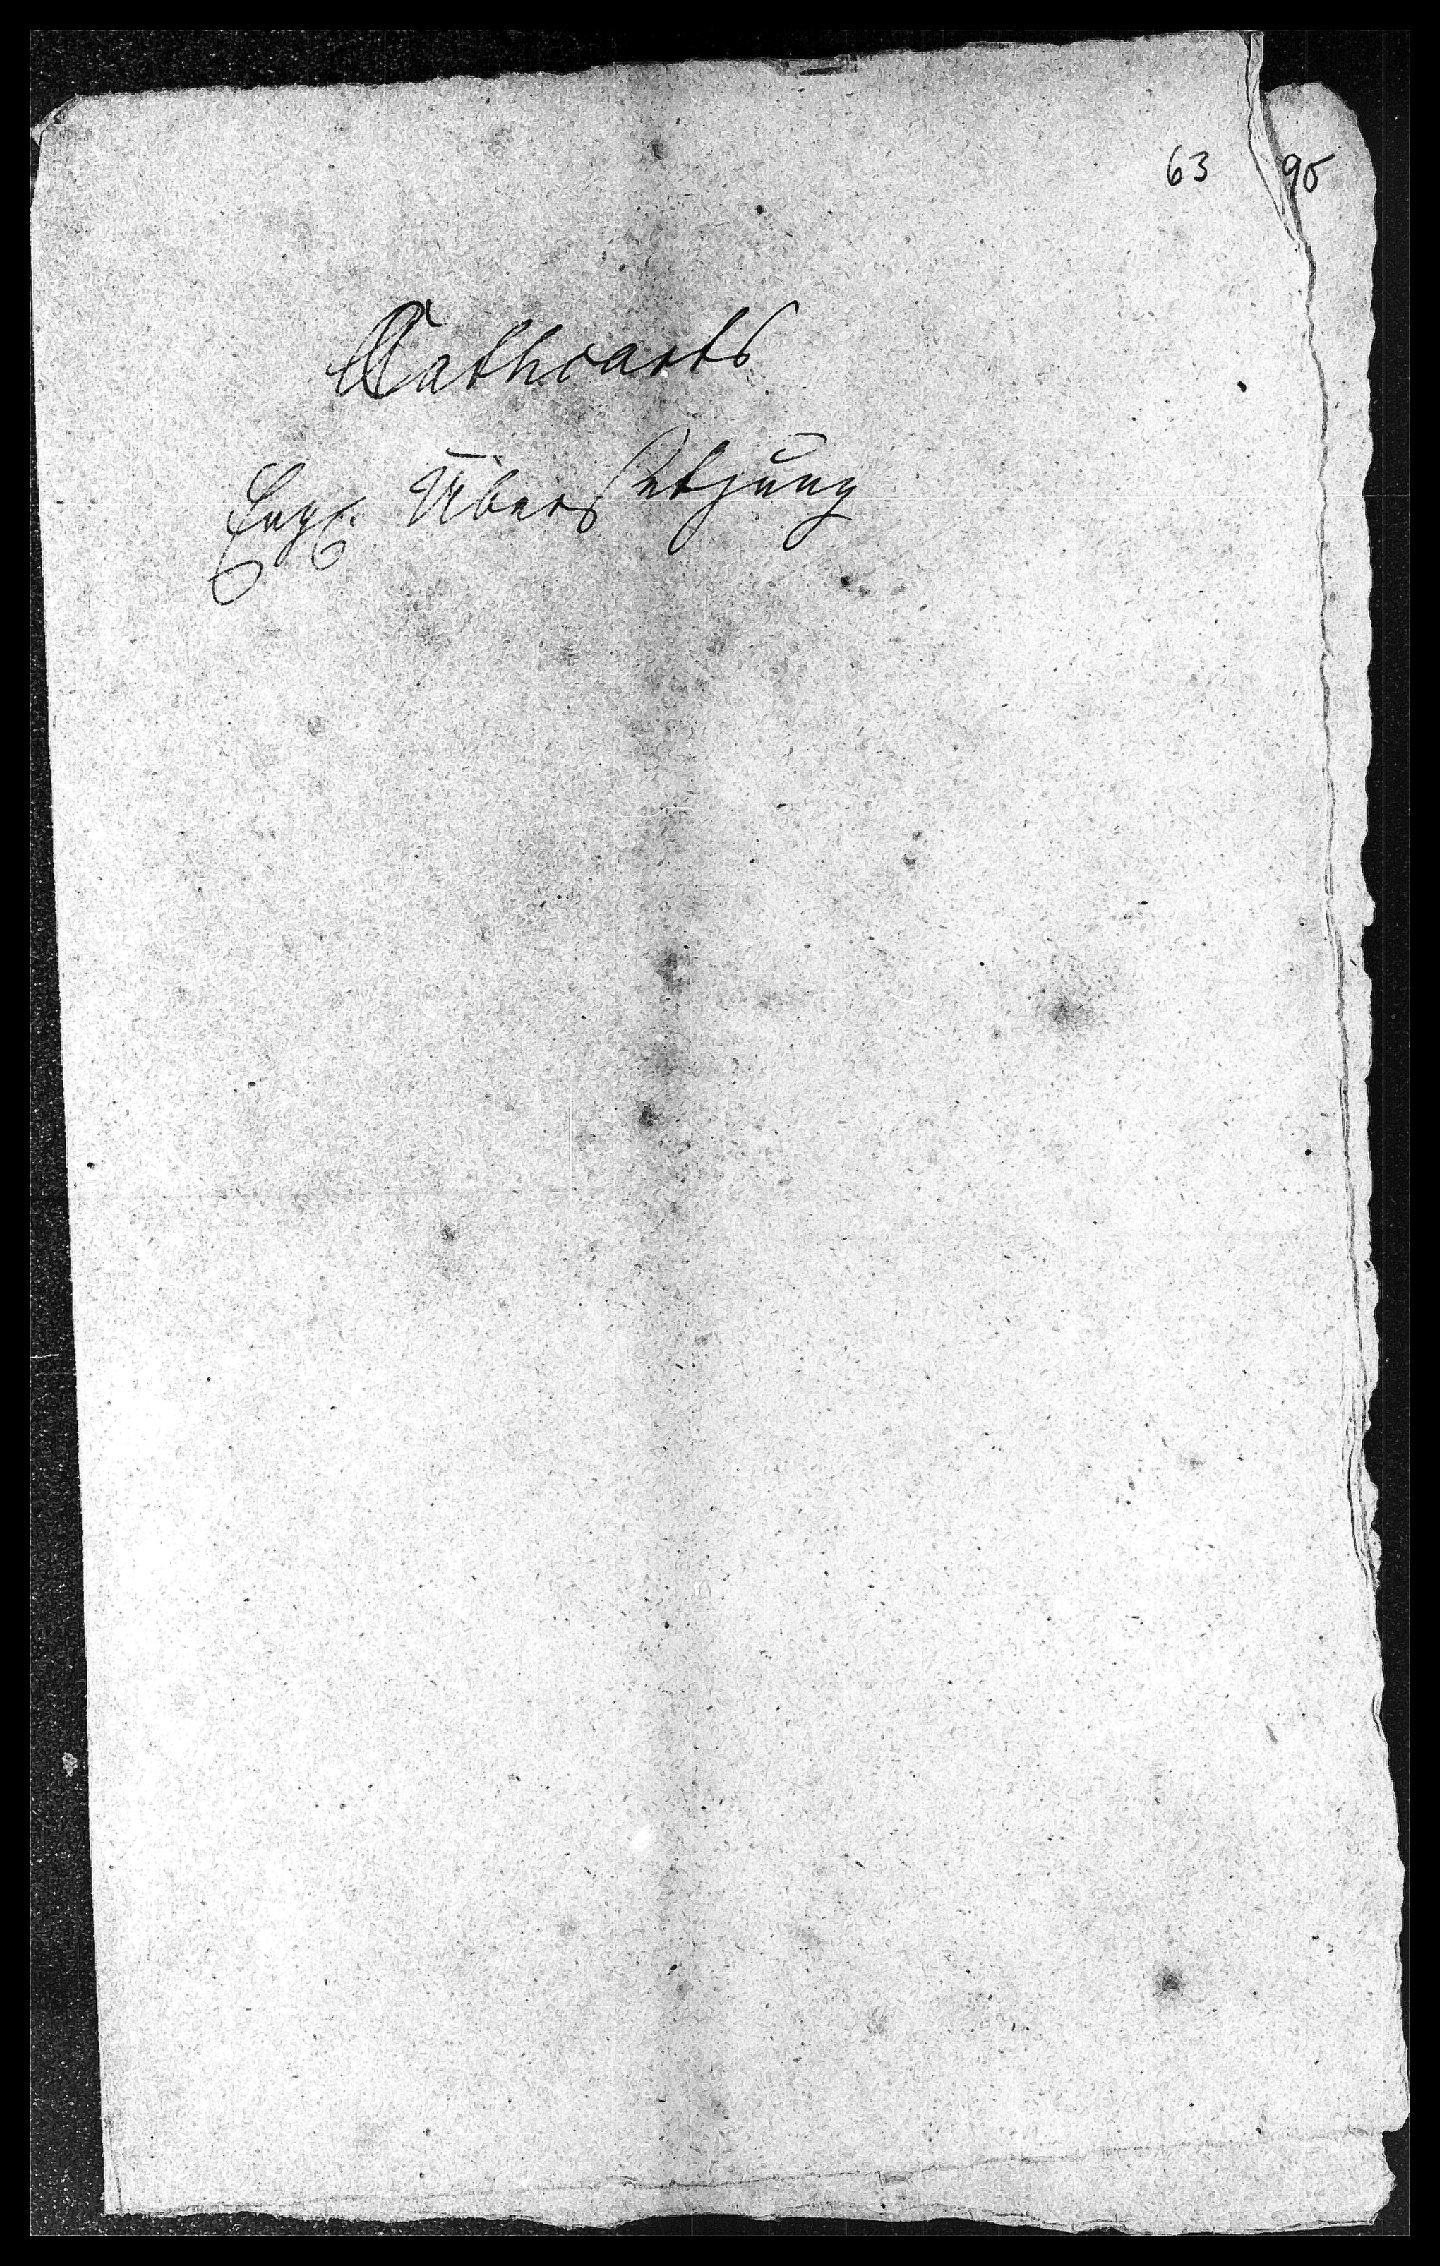 63 95
Cathcarts
Engl. Übersetzung